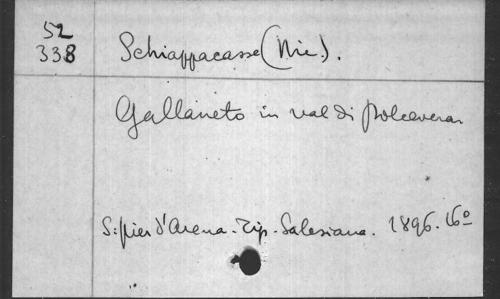 52
338
Schiappacasse (Nic.).
Gallaneto in val di Polcevera.
S. pier d'Arena. Tip. Salesiana. 1896. 16º